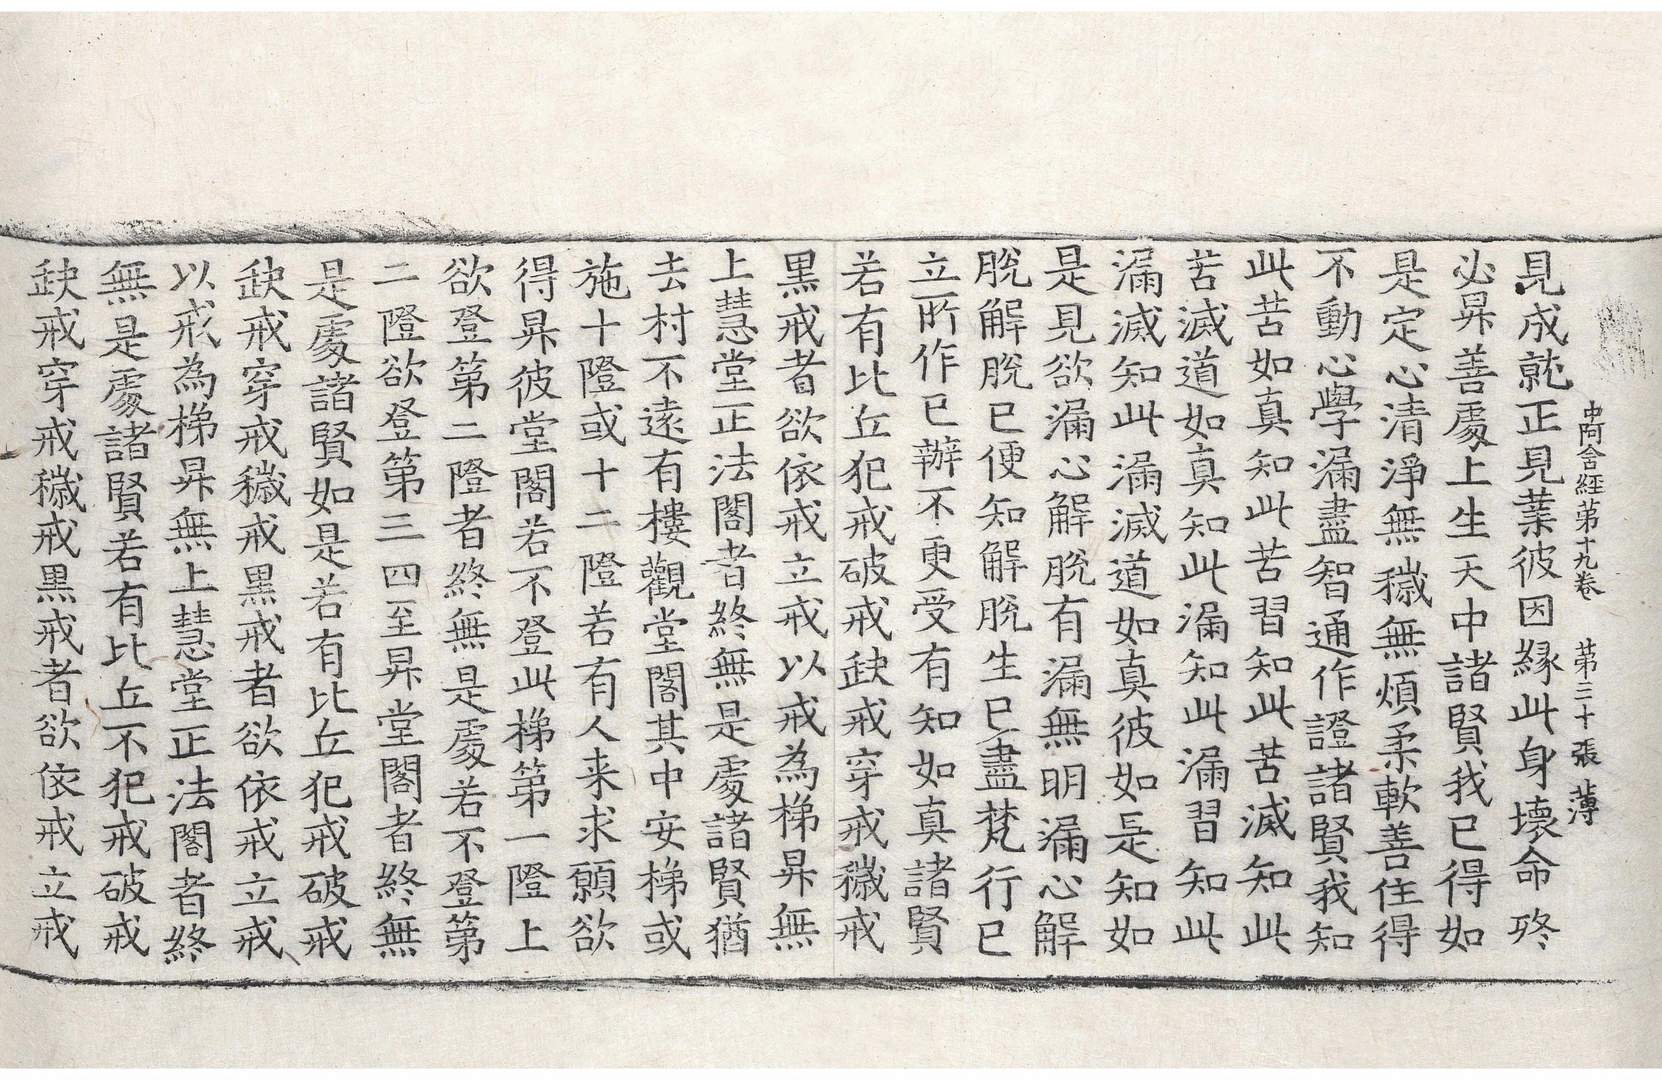 中阿含經第十九卷 第三十張 薄
見成就正見業彼因緣此身壞命終
必昇善處上生天中諸賢我已得如
是定心清淨無穢無煩柔軟善住得
不動心學漏盡智通作證諸賢我知
此苦如真知此苦習知此苦滅知此
苦滅道如真知此漏知此漏習知此
漏滅知此漏滅道如真彼如是知如
是見欲漏心解脫有漏無明漏心解
脫解脫已便知解脫生已盡梵行已
立所作已辦不更受有知如真諸賢
若有比丘犯戒破戒缺戒穿戒穢戒
黑戒者欲依戒立戒以戒為梯昇無
上慧堂正法閣者終無是處諸賢猶
去村不遠有樓觀堂閣其中安梯或
施十隥或十二隥若有人来求願欲
得昇彼堂閣若不登此梯第一隥上
欲登第二隥者終無是處若不登第
二隥欲登第三四至昇堂閣者終無
是處諸賢如是若有比丘犯戒破戒
缺戒穿戒穢戒黑戒者欲依戒立戒
以戒為梯昇無上慧堂正法閣者終
無是處諸賢若有比丘不犯戒破戒
缺戒穿戒穢戒黑戒者欲依戒立戒